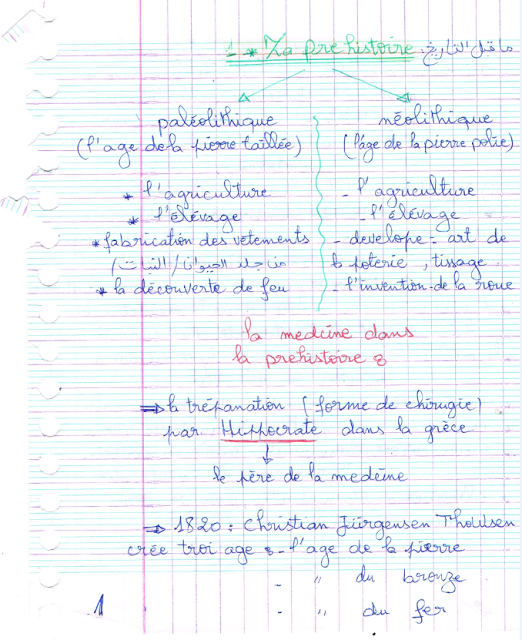 1 - * La prehistoire. ما قبل التاريخ
paléolithique
(l'age de la pierre taillée)
* l'agriculture
* l'élévage
* fabrication des vetements
/من جلد الحيوانا/النبات
* la découverte de feu
néolithique
(l'âge de la pierre polie)
- l'agriculture
- l'élévage
- develope = art de
la poterie, tissage
- l'invention de la roue
la medcine dans
la prehistoire :
⇒ la trépanation (forme de chirugie)
par Hippocrate dans la grèce
↓
le père de la medcine
⇒ 1820 : Christian Jürgensen
crée troi age : - l'age de la pierre
- " du bronze
- " du fer
1